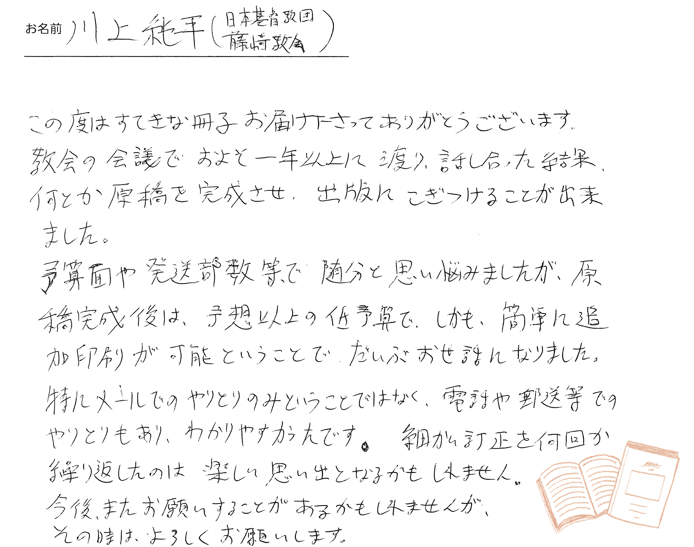 お名前 川上 純平(日本基督教団
藤崎教会)
この度はすてきな冊子お届け下さってありがとうございます。
教会の会議でおよそ一年以上に渡り、話し合った結果、
何とか原稿を完成させ、出版にこぎつけることが出来
ました。
予算面や発送部数等で随分と思い悩みましたが、原
稿完成後は、予想以上の低予算で、しかも、簡単に追
加印刷が可能ということでだいぶお世話になりました。
特にメールでのやりとりのみということではなく、電話や郵送等での
やりとりもあり、わかりやすかったです。細かい訂正を何回か
繰り返したのは楽しい思い出となるかもしれません。
今後、またお願いすることがあるかもしれませんが、
その時は、よろしくお願いします。